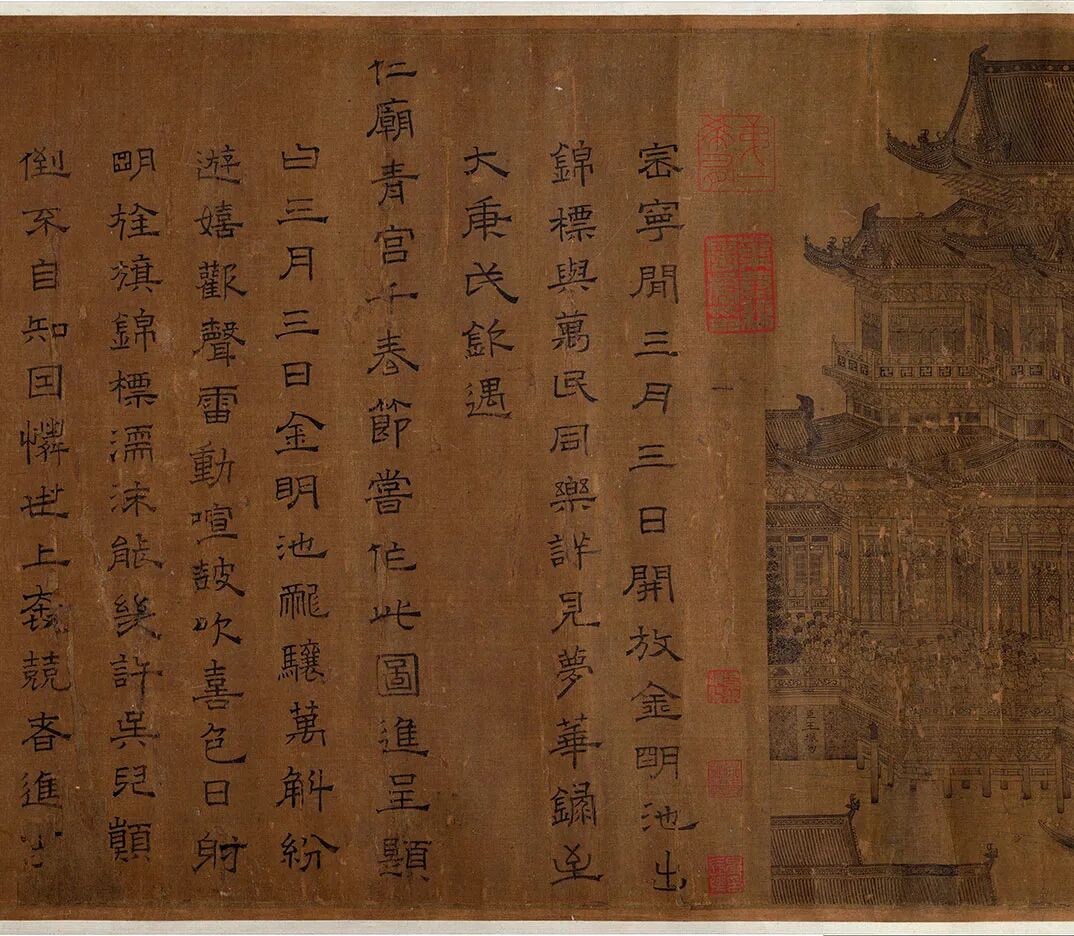 崇寧間三月三日開放金明池出
錦標與萬民同樂詳見夢華錄至
大庚戌欽遇
仁廟青宮千春節嘗作此圖進呈題
曰三月三日金明池龍驤萬斛紛
遊嬉歡聲雷動喧鼓吹喜色日射
明旌旗錦標濡沫能幾許吳兒顛
倒不自知因憐世上奔競者進